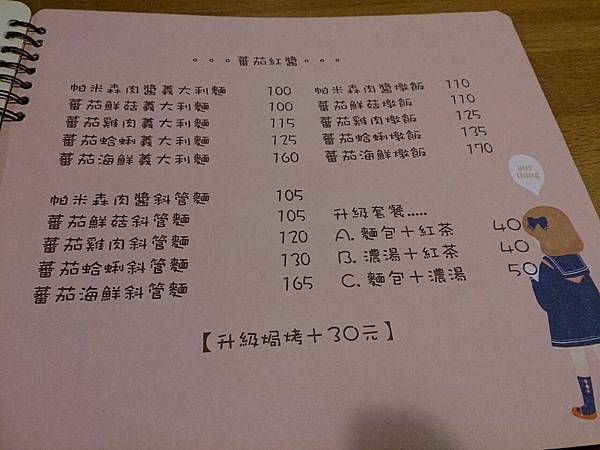 。。。蕃茄紅醬。。。
帕米森肉醬義大利麵 100
蕃茄鮮菇義大利麵 100
蕃茄雞肉義大利麵 115
蕃茄蛤蜊義大利麵 125
蕃茄海鮮義大利麵 160
帕米森肉醬燉飯 110
蕃茄鮮菇燉飯 110
蕃茄雞肉燉飯 125
蕃茄蛤蜊燉飯 135
蕃茄海鮮燉飯 170
帕米森肉醬斜管麵 105
蕃茄鮮菇斜管麵 105
蕃茄雞肉斜管麵 120
蕃茄蛤蜊斜管麵 130
蕃茄海鮮斜管麵 165
升級套餐.....
A. 麵包+紅茶 40
B. 濃湯+紅茶 40
C. 麵包+濃湯 50
【升級焗烤+30元】
any
thing